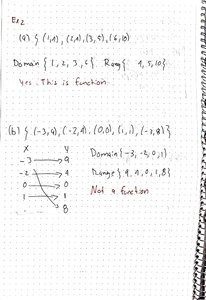 Ex2
(a) { (1,1), (2,1), (3,5), (6,10)
Domain { 1, 2, 3, 6 } Rang { 1, 5, 10 }
Yes. This is function
(b) { (-3,9), (-2,4), (0,0), (1,1), (-2,8) }
x y
-3 9
-2 4
0 0
1 1
8
Domain { -3, -2, 0, 1 }
Range { 9, 4, 0, 1, 8 }
Not a function